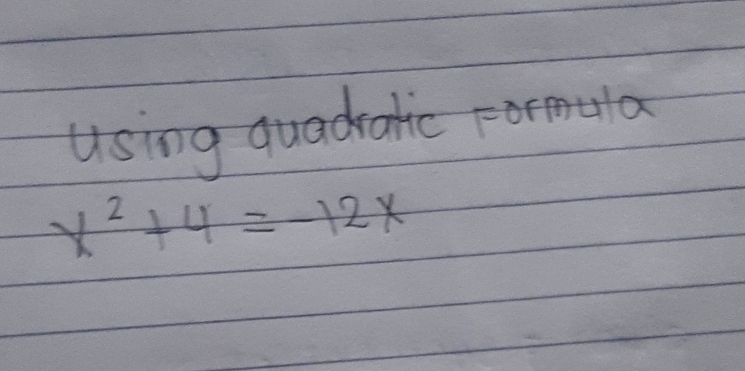 Using quadratic Formula
x² + 4 = -12x